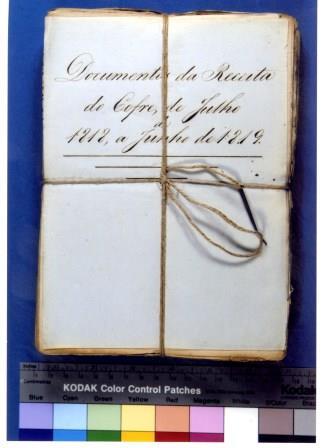 Documentos da Receita
do Cofre, de Julho
de
1818, a Junho de 1819.
Inches
Centimetres
KODAK Color Control Patches
Kodak
Blue Cyan Green Yellow Red Magenta White 3/Color Black